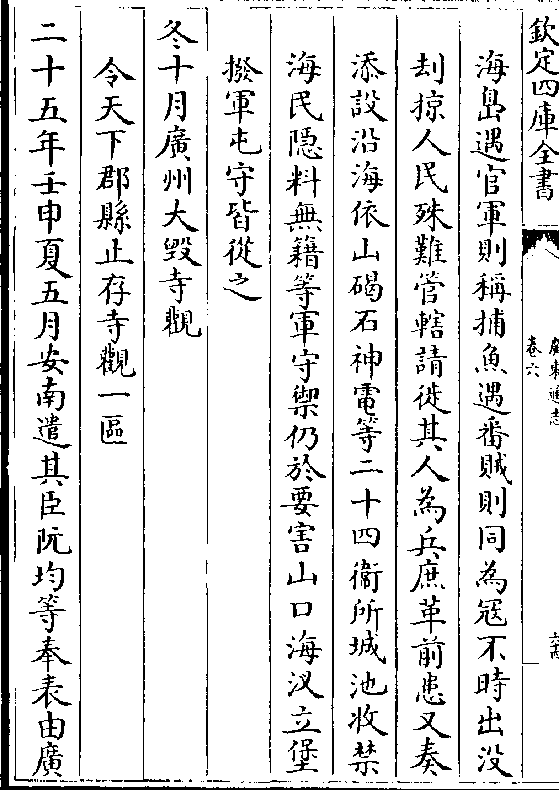 欽定四庫全書
廣東通志
卷六
海島遇官軍則稱捕魚遇番賊則同為寇不時出没
刦掠人民殊難管轄請徙其人為兵庶革前患又奏
添設沿海依山碣石神電等二十四衞所城池收禁
海民隠料無籍等軍守禦仍於要害山口海汊立堡
撥軍屯守皆從之
冬十月廣州大毁寺觀
令天下郡縣止存寺觀一區
二十五年壬申夏五月安南遣其臣阮均等奉表由廣